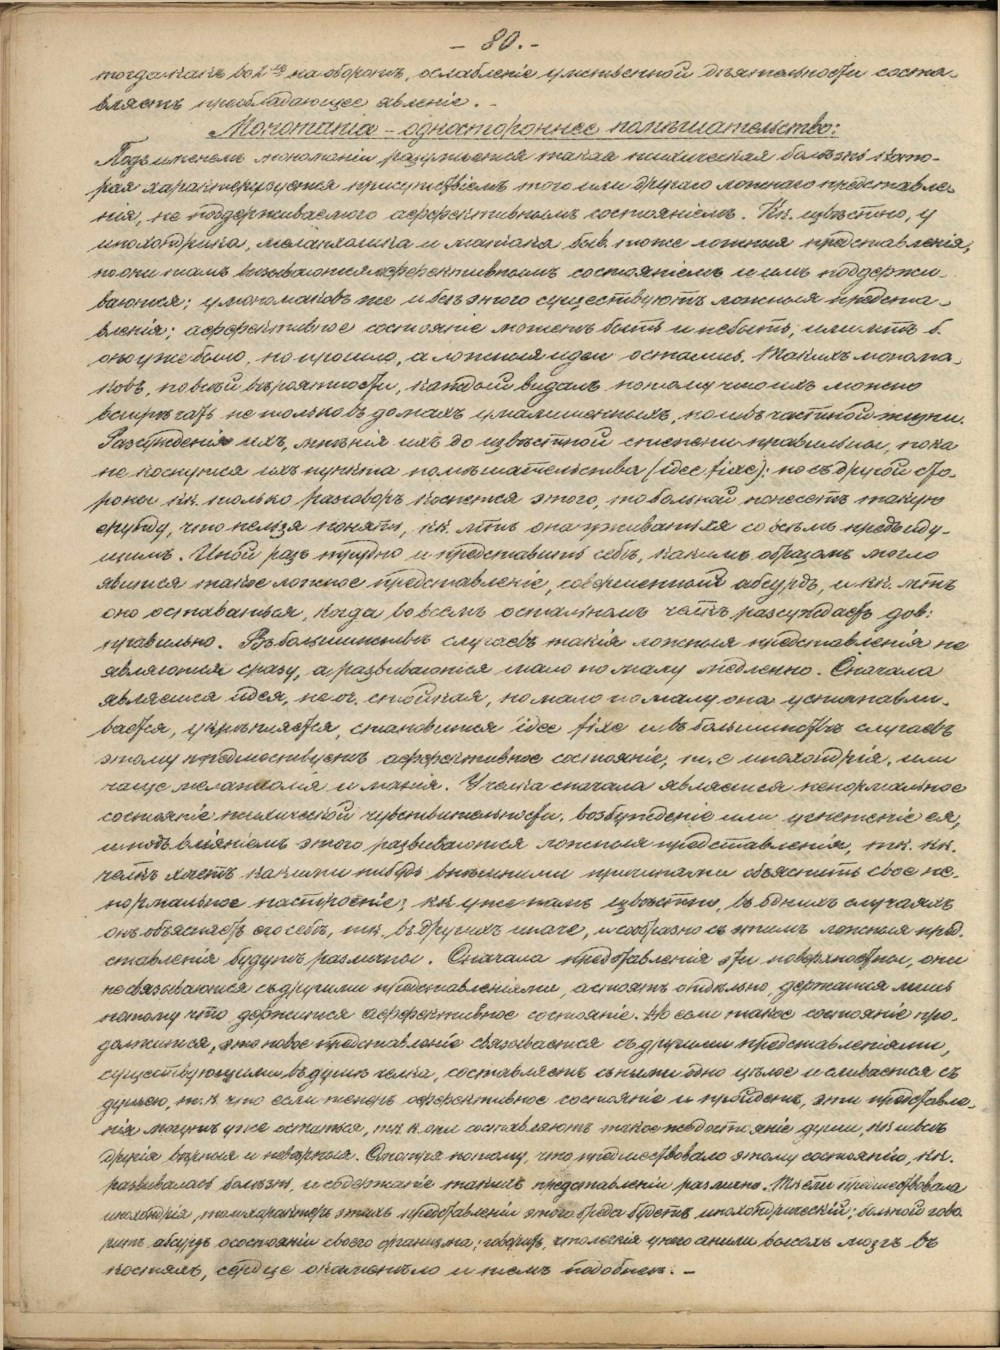 – 80. –
тогда какъ во 2-хъ на оборотъ, ослабленіе умственной дѣятельности соста-
вляетъ преобладающее явленіе. –
Мономанія – одностороннее помѣшательство:
Подъ именемъ мономаніи разумѣется такая психическая болѣзнь кото-
рая характеризуется присутствіемъ того или другаго ложнаго представле-
нія, не поддерживаемого аффективнымъ состояніемъ. Кк. извѣстно, у
ипохондрика, меланхолика и маніака быв. тоже ложныя представленія,
но они тамъ вызываются аффективнымъ состояніемъ и имъ поддержи-
ваются; у мономаковъ же и безъ этого существуютъ ложныя предста-
вленія; аффективное состояніе можетъ быть и не быть, или мтъ б.
оно уже было, но прошло, а ложныя идеи остались. Такихъ монома-
ковъ, по всей вѣроятности, каждый видалъ потому что ихъ можно
встрѣчать не только въ домахъ умалишенныхъ, но и въ частной жизни.
Разсужденія ихъ, мнѣнія ихъ до извѣстной степени правильны, пока
не коснутся ихъ пункта помѣшательства (idee fixe): но съ другой сто-
роны кк. только разговоръ коснется этого, то больной понесетъ такую
ерунду, что нельзя понять, кк. мтъ она уживаться со всѣмъ предъиду-
щимъ. Иной разъ трудно и представить себѣ, какимъ образомъ могло
явиться такое ложное представленіе, совершенный абсурдъ, и кк. мтъ
оно оставаться, когда во всемъ остальномъ разсуждаетъ дов:
правильно. Въ большинствѣ случаевъ такія ложныя представленія не
являются сразу, а развиваются мало по малу медленно. Сначала
является идея, не оч. стойкая, но мало по малу она устанавли-
вается, укрѣпляется, становится idee fixe и въ большинствѣ случаевъ
этому предшествуетъ аффективное состояніе, т. е. ипохондрія, или
чаще меланхолія и манія. У челка сначала является ненормальное
состояніе психической чувствительности, возбужденіе или угнетеніе ея,
и подъ вліяніемъ этого развиваются ложныя представленія, тк. кк.
челкъ хочетъ какими нибудь внѣшними причинами объяснить свое не-
нормальное настроеніе; кк уже намъ извѣстно, въ однихъ случаяхъ
онъ объясняетъ его себѣ, тк. въ другихъ иначе, и сообразно съ этимъ ложныя пред-
ставленія будутъ различны. Сначала представленія эти поверхностны, они
не связываются съ другими представленіями, а стоятъ отдѣльно, держатся лишь
потому что держится аффективное состояніе. Но если такое состояніе про-
должится, это новое представленіе связывается съ другими представленіями,
существующими въ душѣ челка, составляетъ съ ними одно цѣлое и сливается съ
душею, т. к что если теперь аффективное состояніе и пройдетъ, эти представле-
нія могутъ уже остаться, тк к они составляютъ такое же достояніе души, кк и всѣ
другія вѣрныя и невѣрныя. Смотря потому, что предшествовало этому состоянію, кк.
развивалась болѣзнь, и содержаніе такихъ представленій различно. Если предшествовала
ипохондрія, то и характеръ этихъ представленій этого бреда будетъ ипохондрическій; больной гово
ритъ абсурдъ о состояніи своего организма; говоритъ, что у него высохъ мозгъ въ
костяхъ, сердце окаменѣло и тому подобное. –